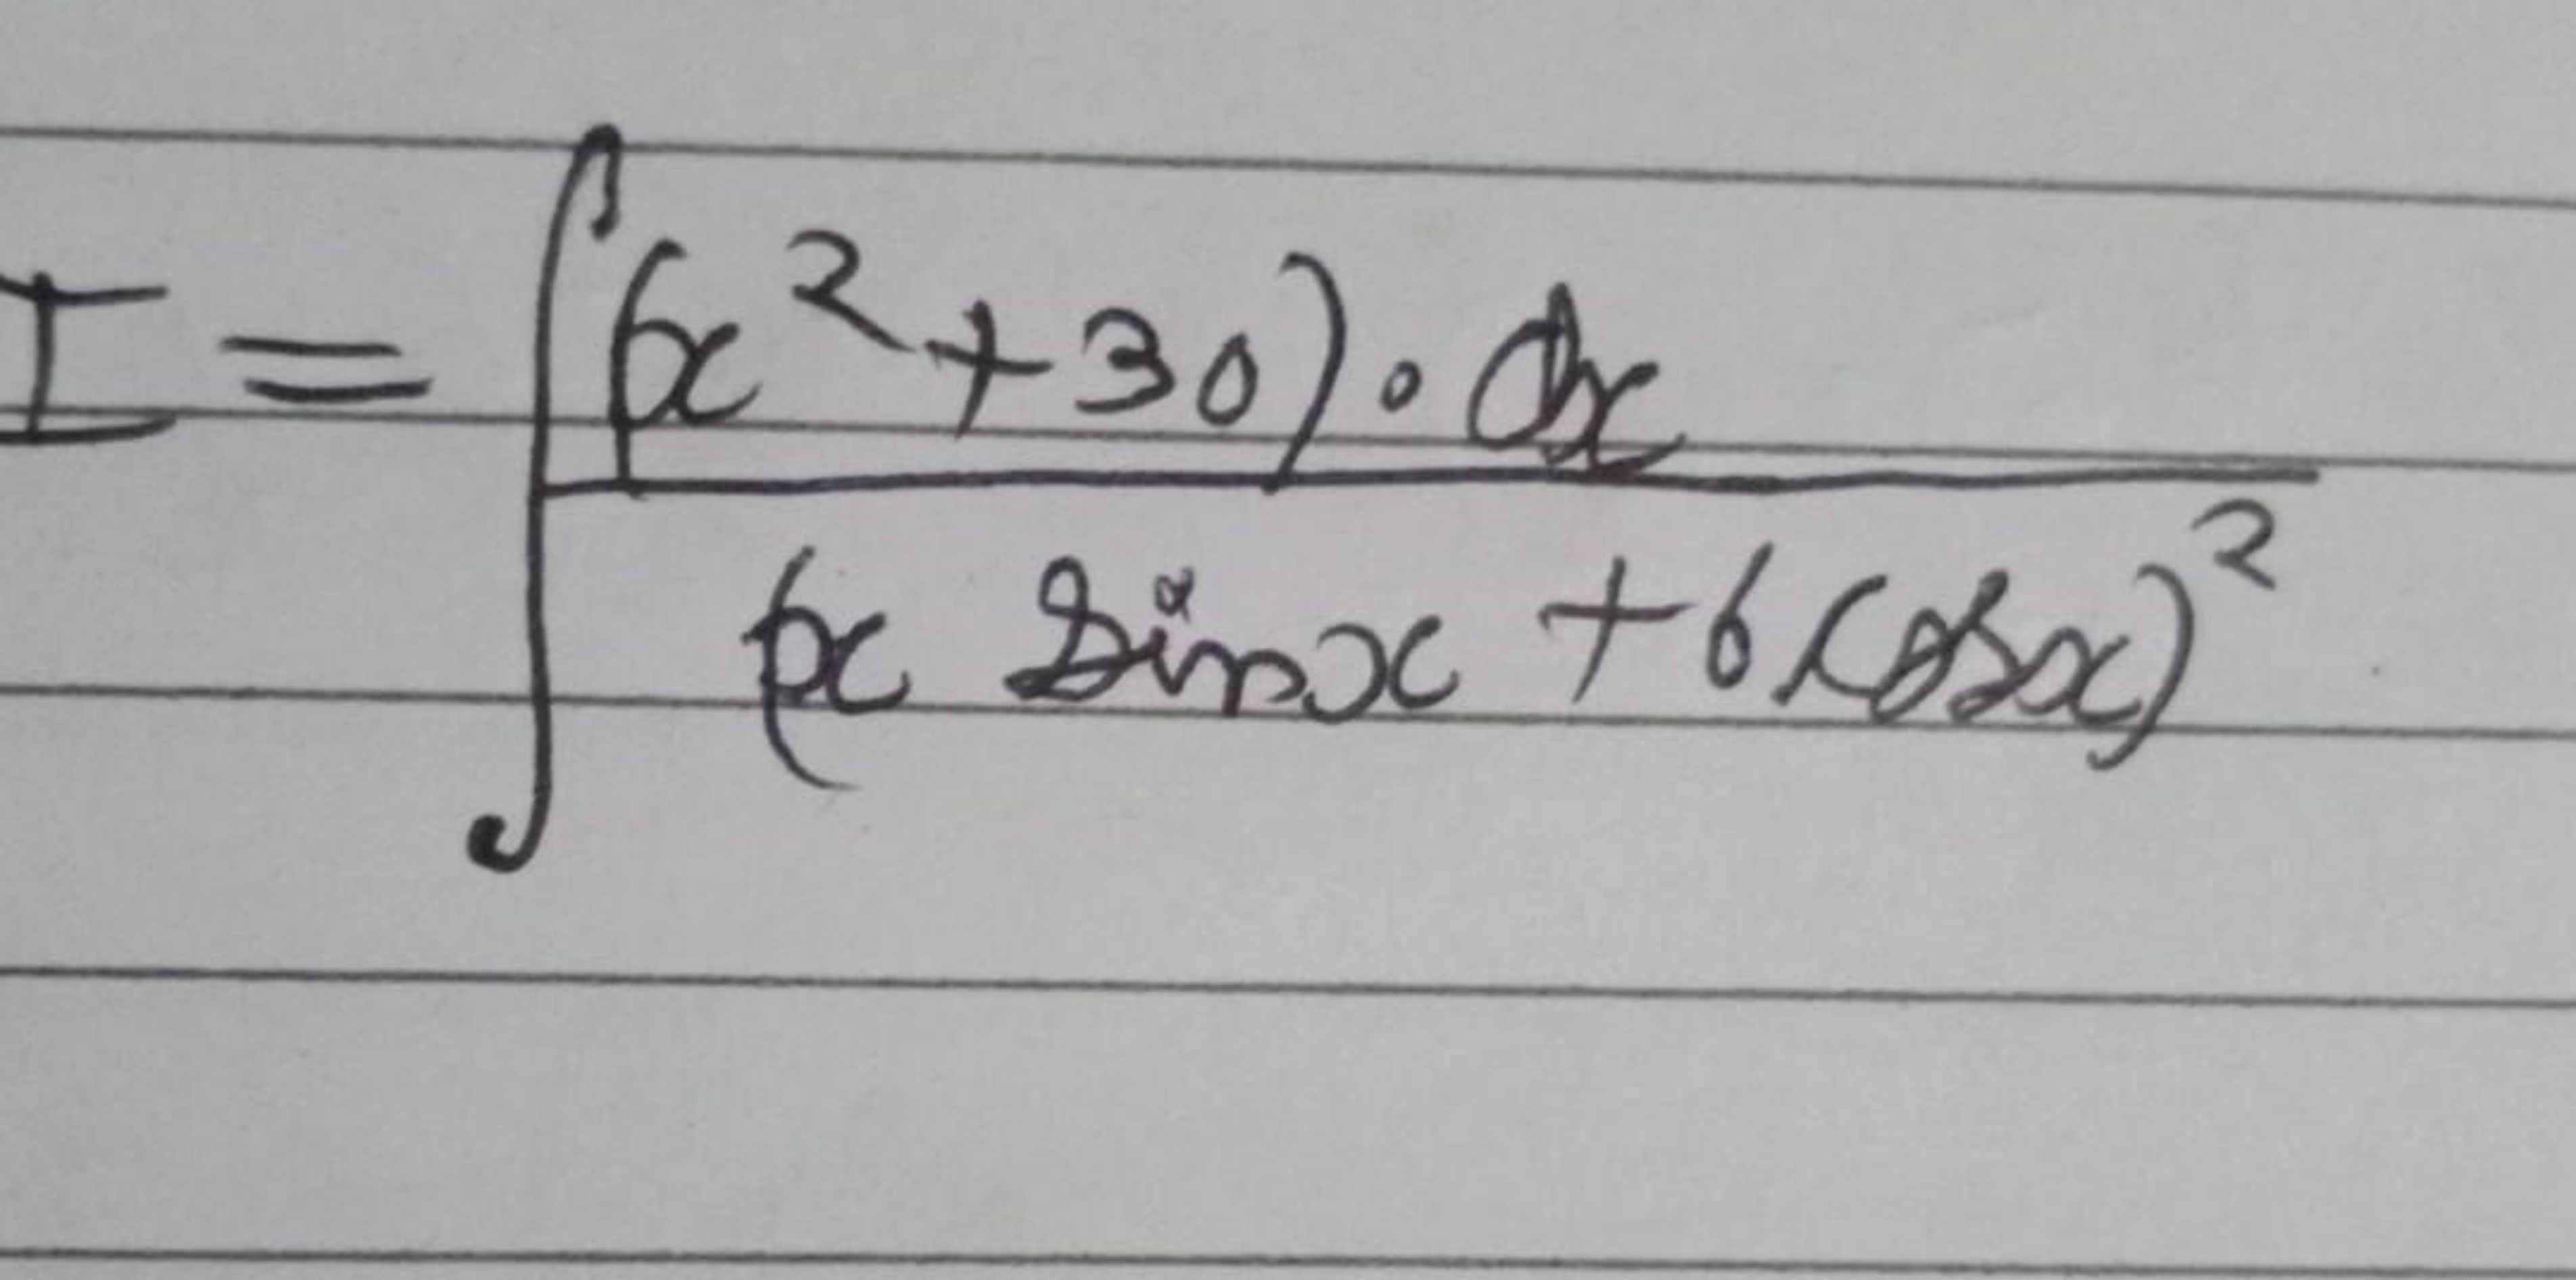 I = ∫ (x² + 30) · dx / (x sin x + 6 cos x)²